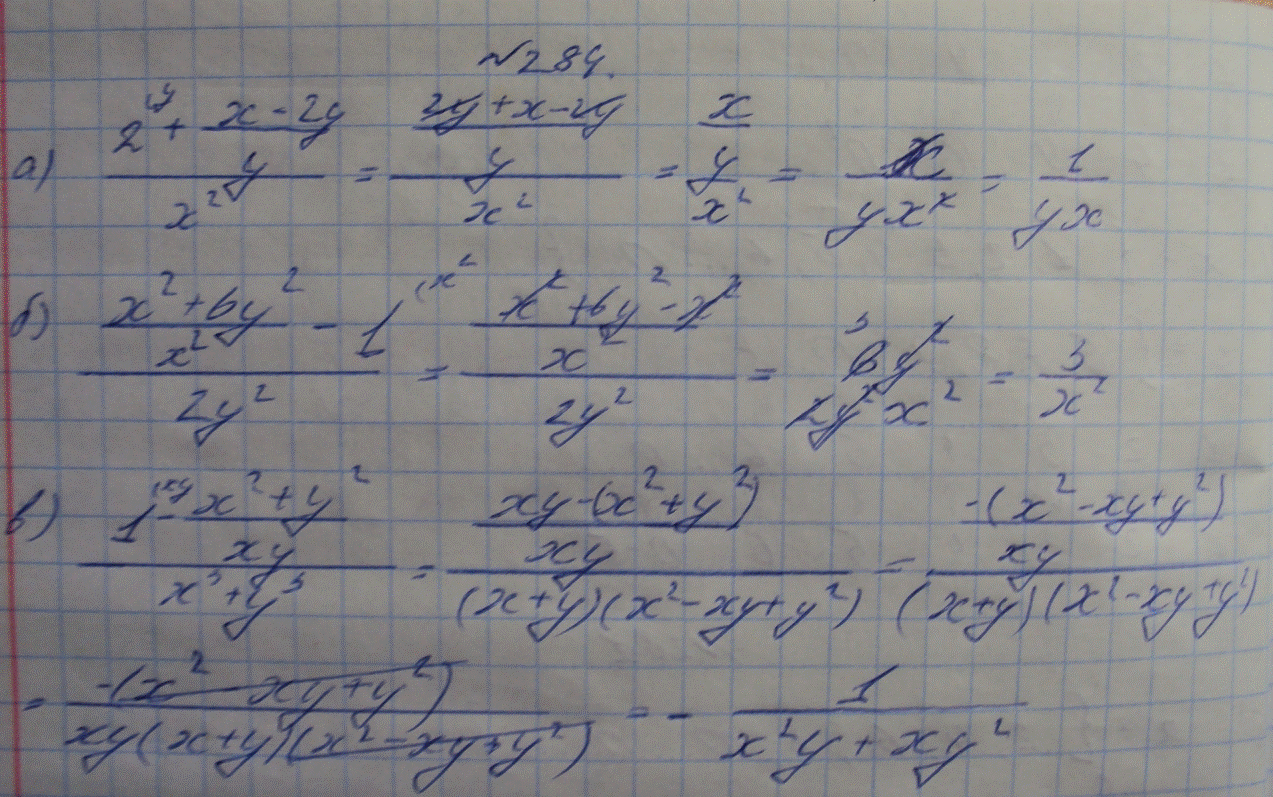 №284.
а) (2^(y + (x-2y)/y)/x² = ((2y+x-2y)/y)/x² = (x/y)/x² = x/(yx²) = 1/(yx)
б) ((x²+6y²)/x² - 1^(x²)/(2y²) = ((x²+6y²-x²)/x²)/(2y²) = 6y²/(2y²x²) = 3/x²
в) (1^(xy - (x²+y²)/(xy))/(x³+y³) = ((xy-(x²+y²))/(xy))/((x+y)(x²-xy+y²)) = (-(x²-xy+y²)/(xy))/((x+y)(x²-xy+y²))
= -(x²-xy+y²)/(xy(x+y)(x²-xy+y²)) = - 1/(x²y+xy²)